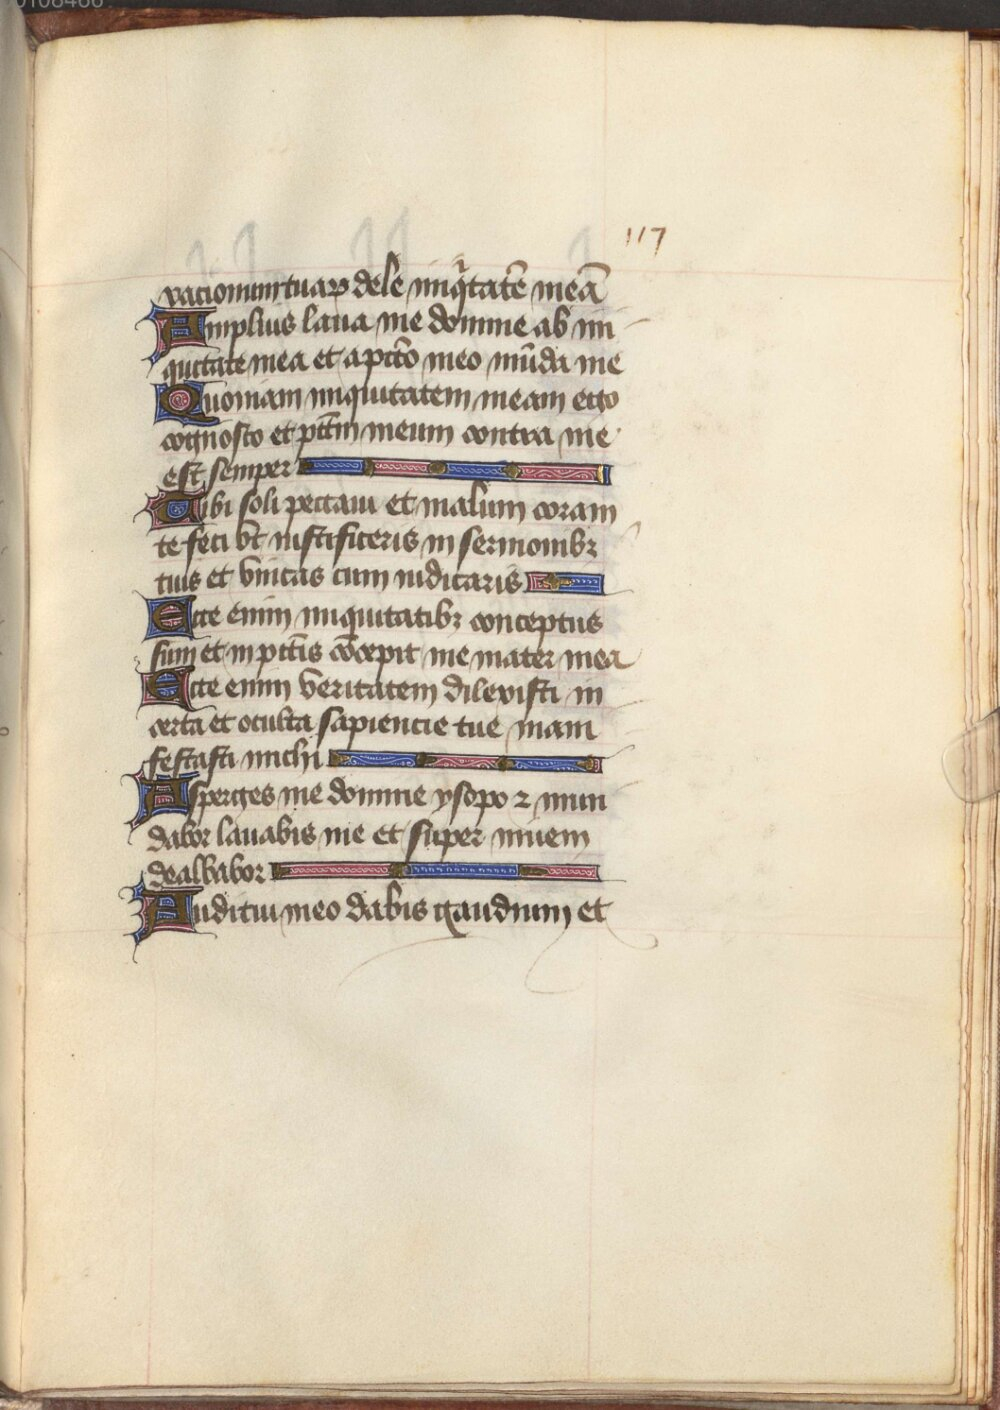 117
racionum tuaꝝ dele iniq̇tatē meā
Amplius laua me domine ab ini
quitate mea et a pctō meo mūda me
Quoniam iniquitatem meam ego
cognosco et pctm̄ meum contra me
est semper
Tibi soli peccaui et malum coram
te feci vt iustificeris in sermonibꝫ
tuis et vincas cum iudicaris
Ecce enim iniquitatibꝫ conceptus
sum et in pctīs cōcepit me mater mea
Ecce enim veritatem dilexisti in
certa et oculta sapiencie tue mani
festasti michi
Asperges me domine ysopo ⁊ mun
dabor lauabis me et super niuem
dealbabor
Auditui meo dabis gaudium et